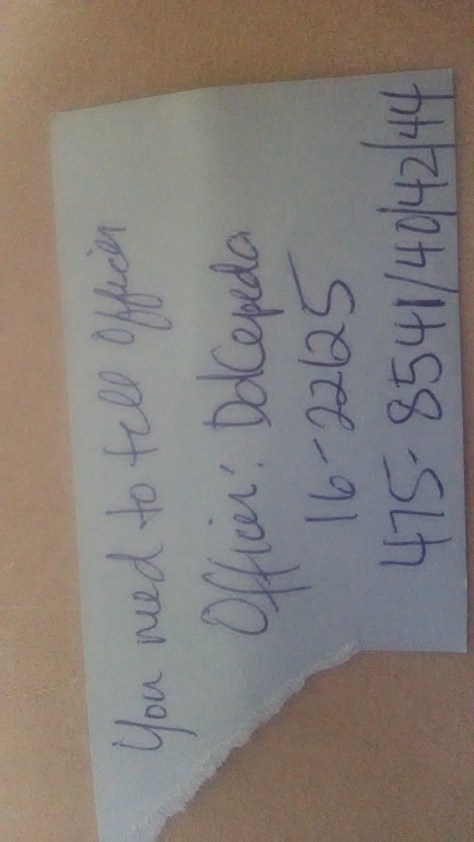 You need to tell Officer
Officer: DdCepeda
16-22625
475-8541/40/42/44